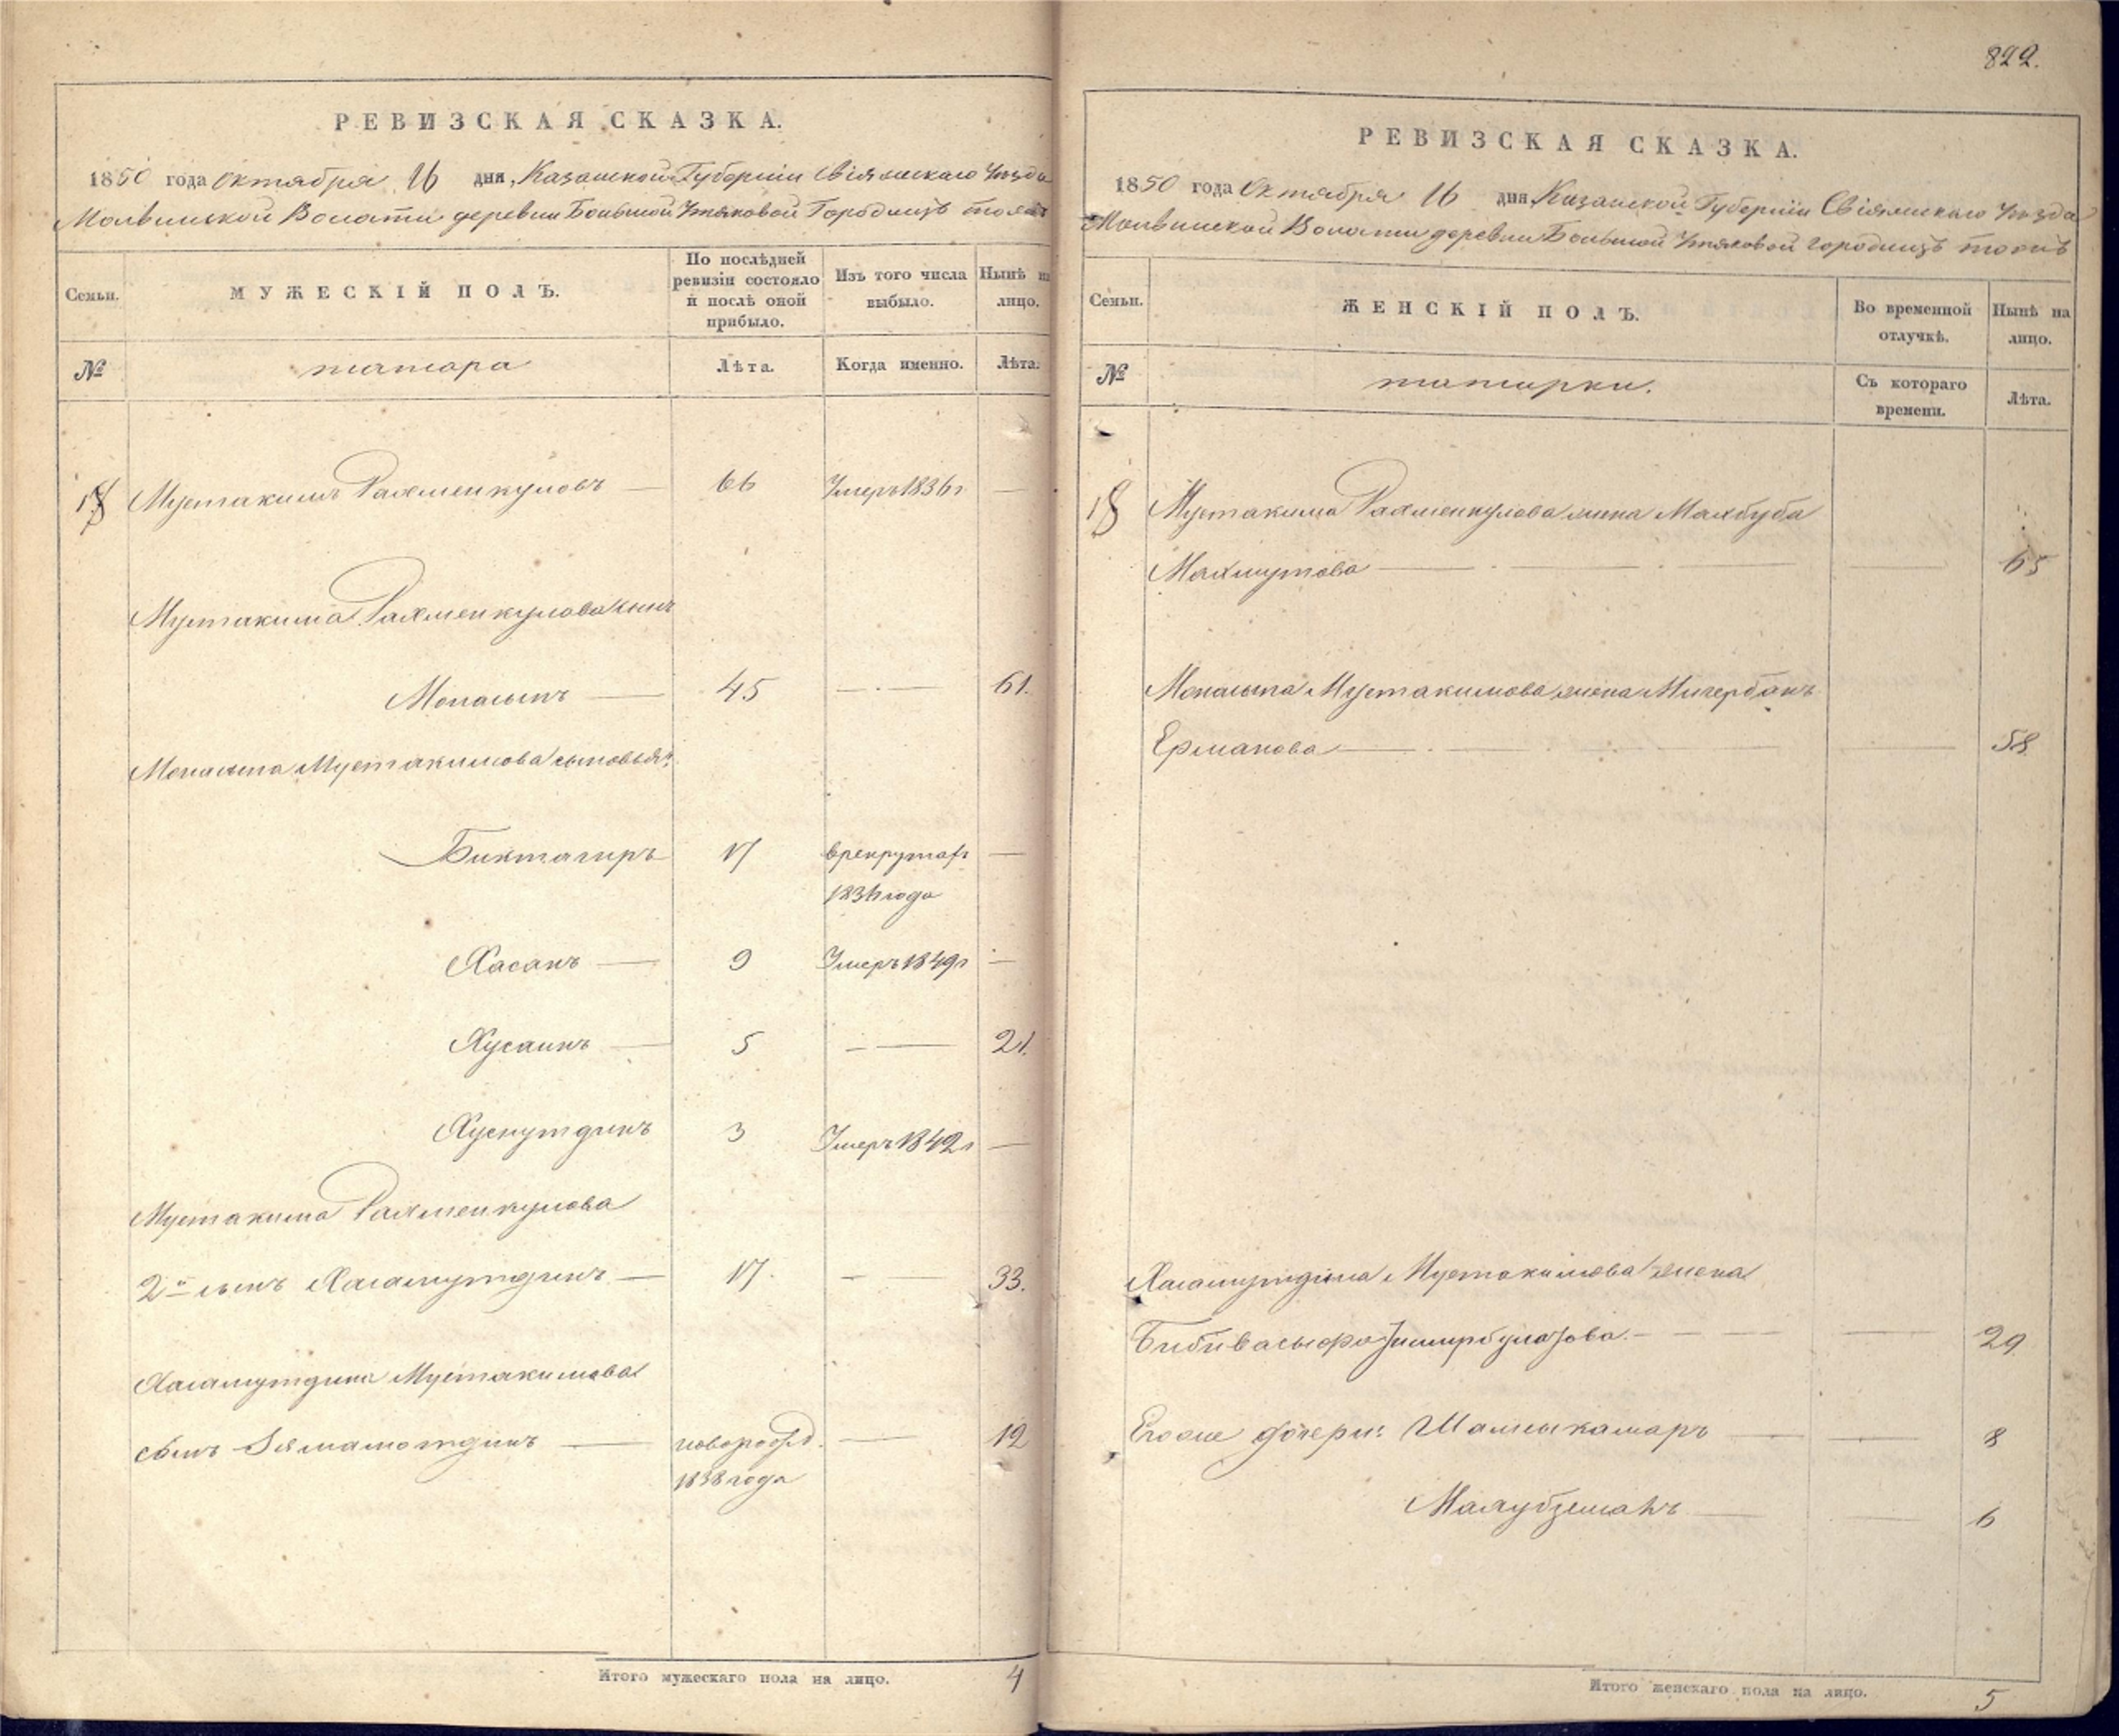 822.
РЕВИЗСКАЯ СКАЗКА.
1850 года октября 16 дня, Казанской Губерніи Свіяжскаго Уѣзда
Молвинской Волости деревни Большой Утяковой Городищѣ тожъ
Семьи.
МУЖЕСКІЙ ПОЛЪ.
По послѣдней ревизіи состояло и послѣ оной прибыло.
Изъ того числа выбыло.
Нынѣ на лицо.
№
татара
Лѣта.
Когда именно.
Лѣта.
18 Мустакимъ Рахменкуловъ — 66 Умеръ 1836 г —
Мустакима Рахменкулова сынъ
Мопасыпъ — 45 — — 61.
Мопасыпа Мустакимова сыновья:
Биктагиръ 17 в рекрутах —
1836 года
Хасанъ — 9 Умеръ 1849 г —
Хусаинъ — 5 — — 21.
Хуснутдинъ 3 Умеръ 1842 г —
Мустакима Рахменкулова
2й сынъ Хасамутдинъ — 17. — 33.
Хасамутдина Мустакимова
сынъ Зямамотдинъ — новорожд. — 12
1838 года
Итого мужескаго пола на лицо. 4
РЕВИЗСКАЯ СКАЗКА.
1850 года Октября 16 дня, Казанской Губерніи Свіяжскаго Уѣзда
Молвинской Волости деревни Большой Утяковой городищъ тожъ
Семьи.
ЖЕНСКІЙ ПОЛЪ.
Во временной отлучкѣ.
Нынѣ на лицо.
№
татарки.
Съ котораго времени.
Лѣта.
18 Мустакима Рахменкулова жена Махбуба
Махмутова — — — 65
Мопасыпа Мустакимова жена Мигербанъ
Ерманова — — — 58
Хасамутдина Мустакимова жена
Бибивасыфа Зимирбулатова. — — 29
Его же дочери: Шамсыкамаръ — — 8
Махубземанъ — — 6
Итого женскаго пола на лицо. 5